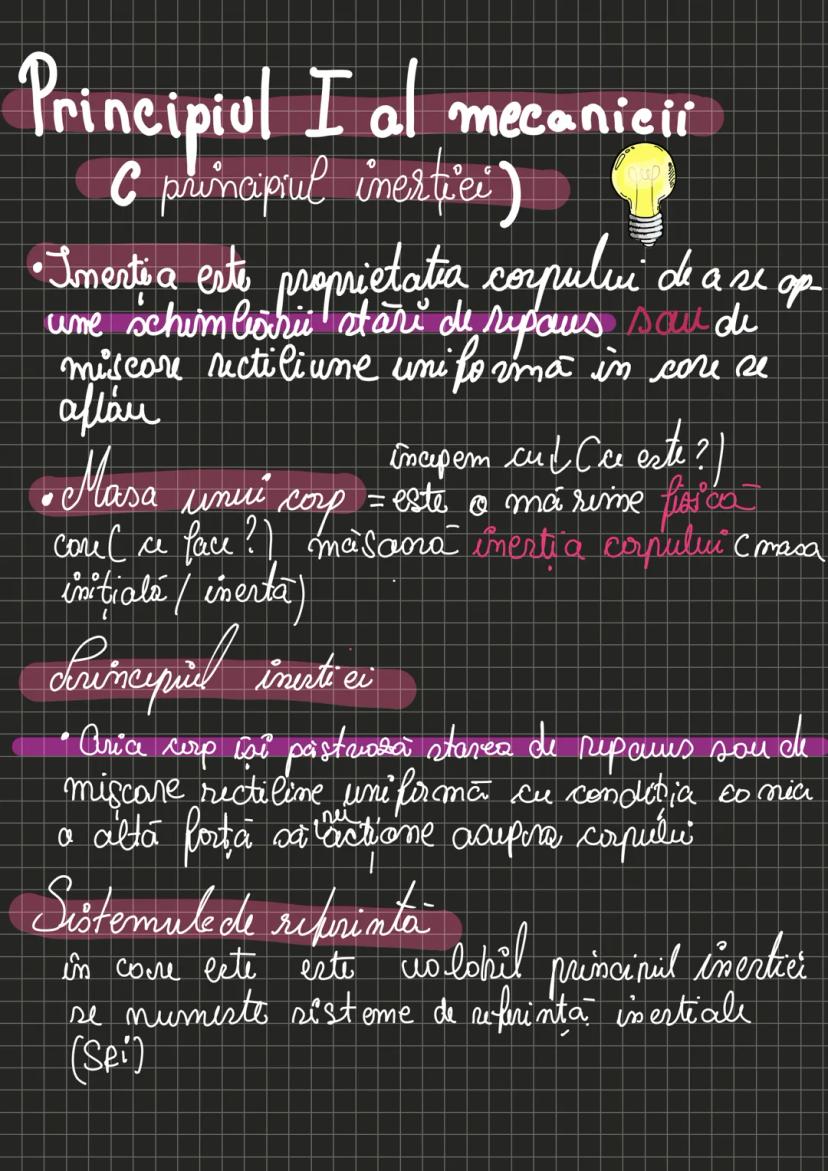 Principiul I al mecanicii
( principiul inerției )
• Inerția este proprietatea corpului de a se op-
une schimbării stării de repaus sau de
mișcare rectiliune uniformă in care se
aflău
incepem cu ( ce este ? )
• Masa unui corp = este o mărime fisică
care ( ce face ? ) măsoară inerția corpului ( masa
inițială / inertă )
Principiul inertiei
• Orice corp își păstrează starea de repaus sau de
mișcare rectiline uniformă cu condiția ca nici
o altă forță să nu acțione asupra corpului
Sistemul de referintă
în care este este valabil principiul inertiei
se numeste sisteme de referință inertiale
(SRi)